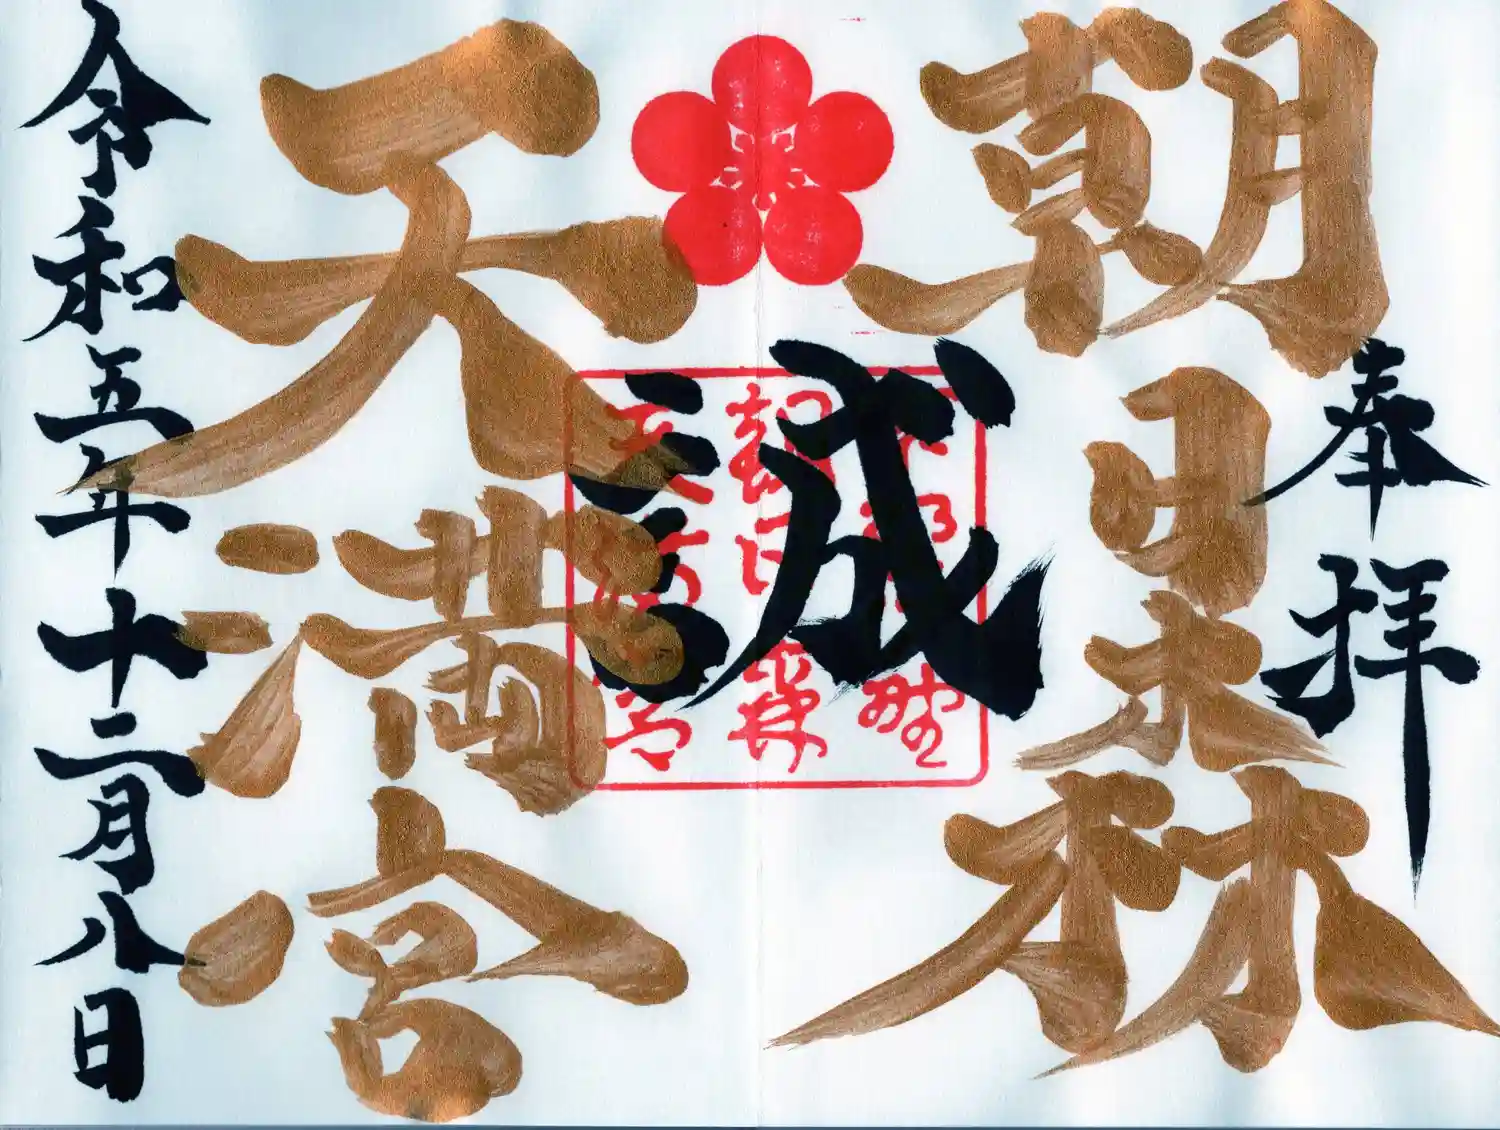 奉拝
朝日森
天満宮
誠
朝日森
天満宮
令和五年十二月八日